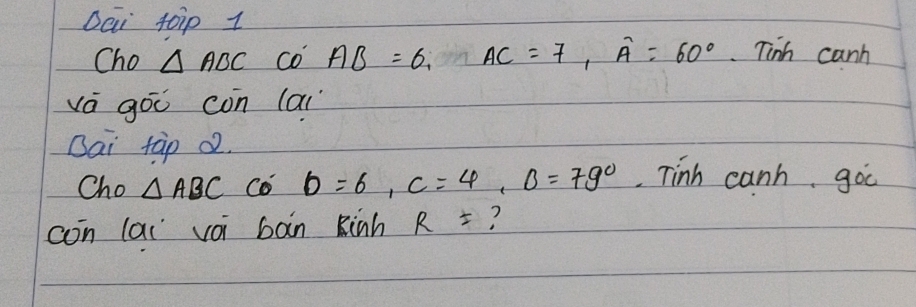 Bài tập 1
Cho Δ ABC có AB = 6, AC = 7, Â = 60°. Tính cạnh
và góc còn lại
Bài tập 2.
Cho Δ ABC có b = 6, c = 4, B = 79°. Tính cạnh, góc
còn lại với bán kính R = ?